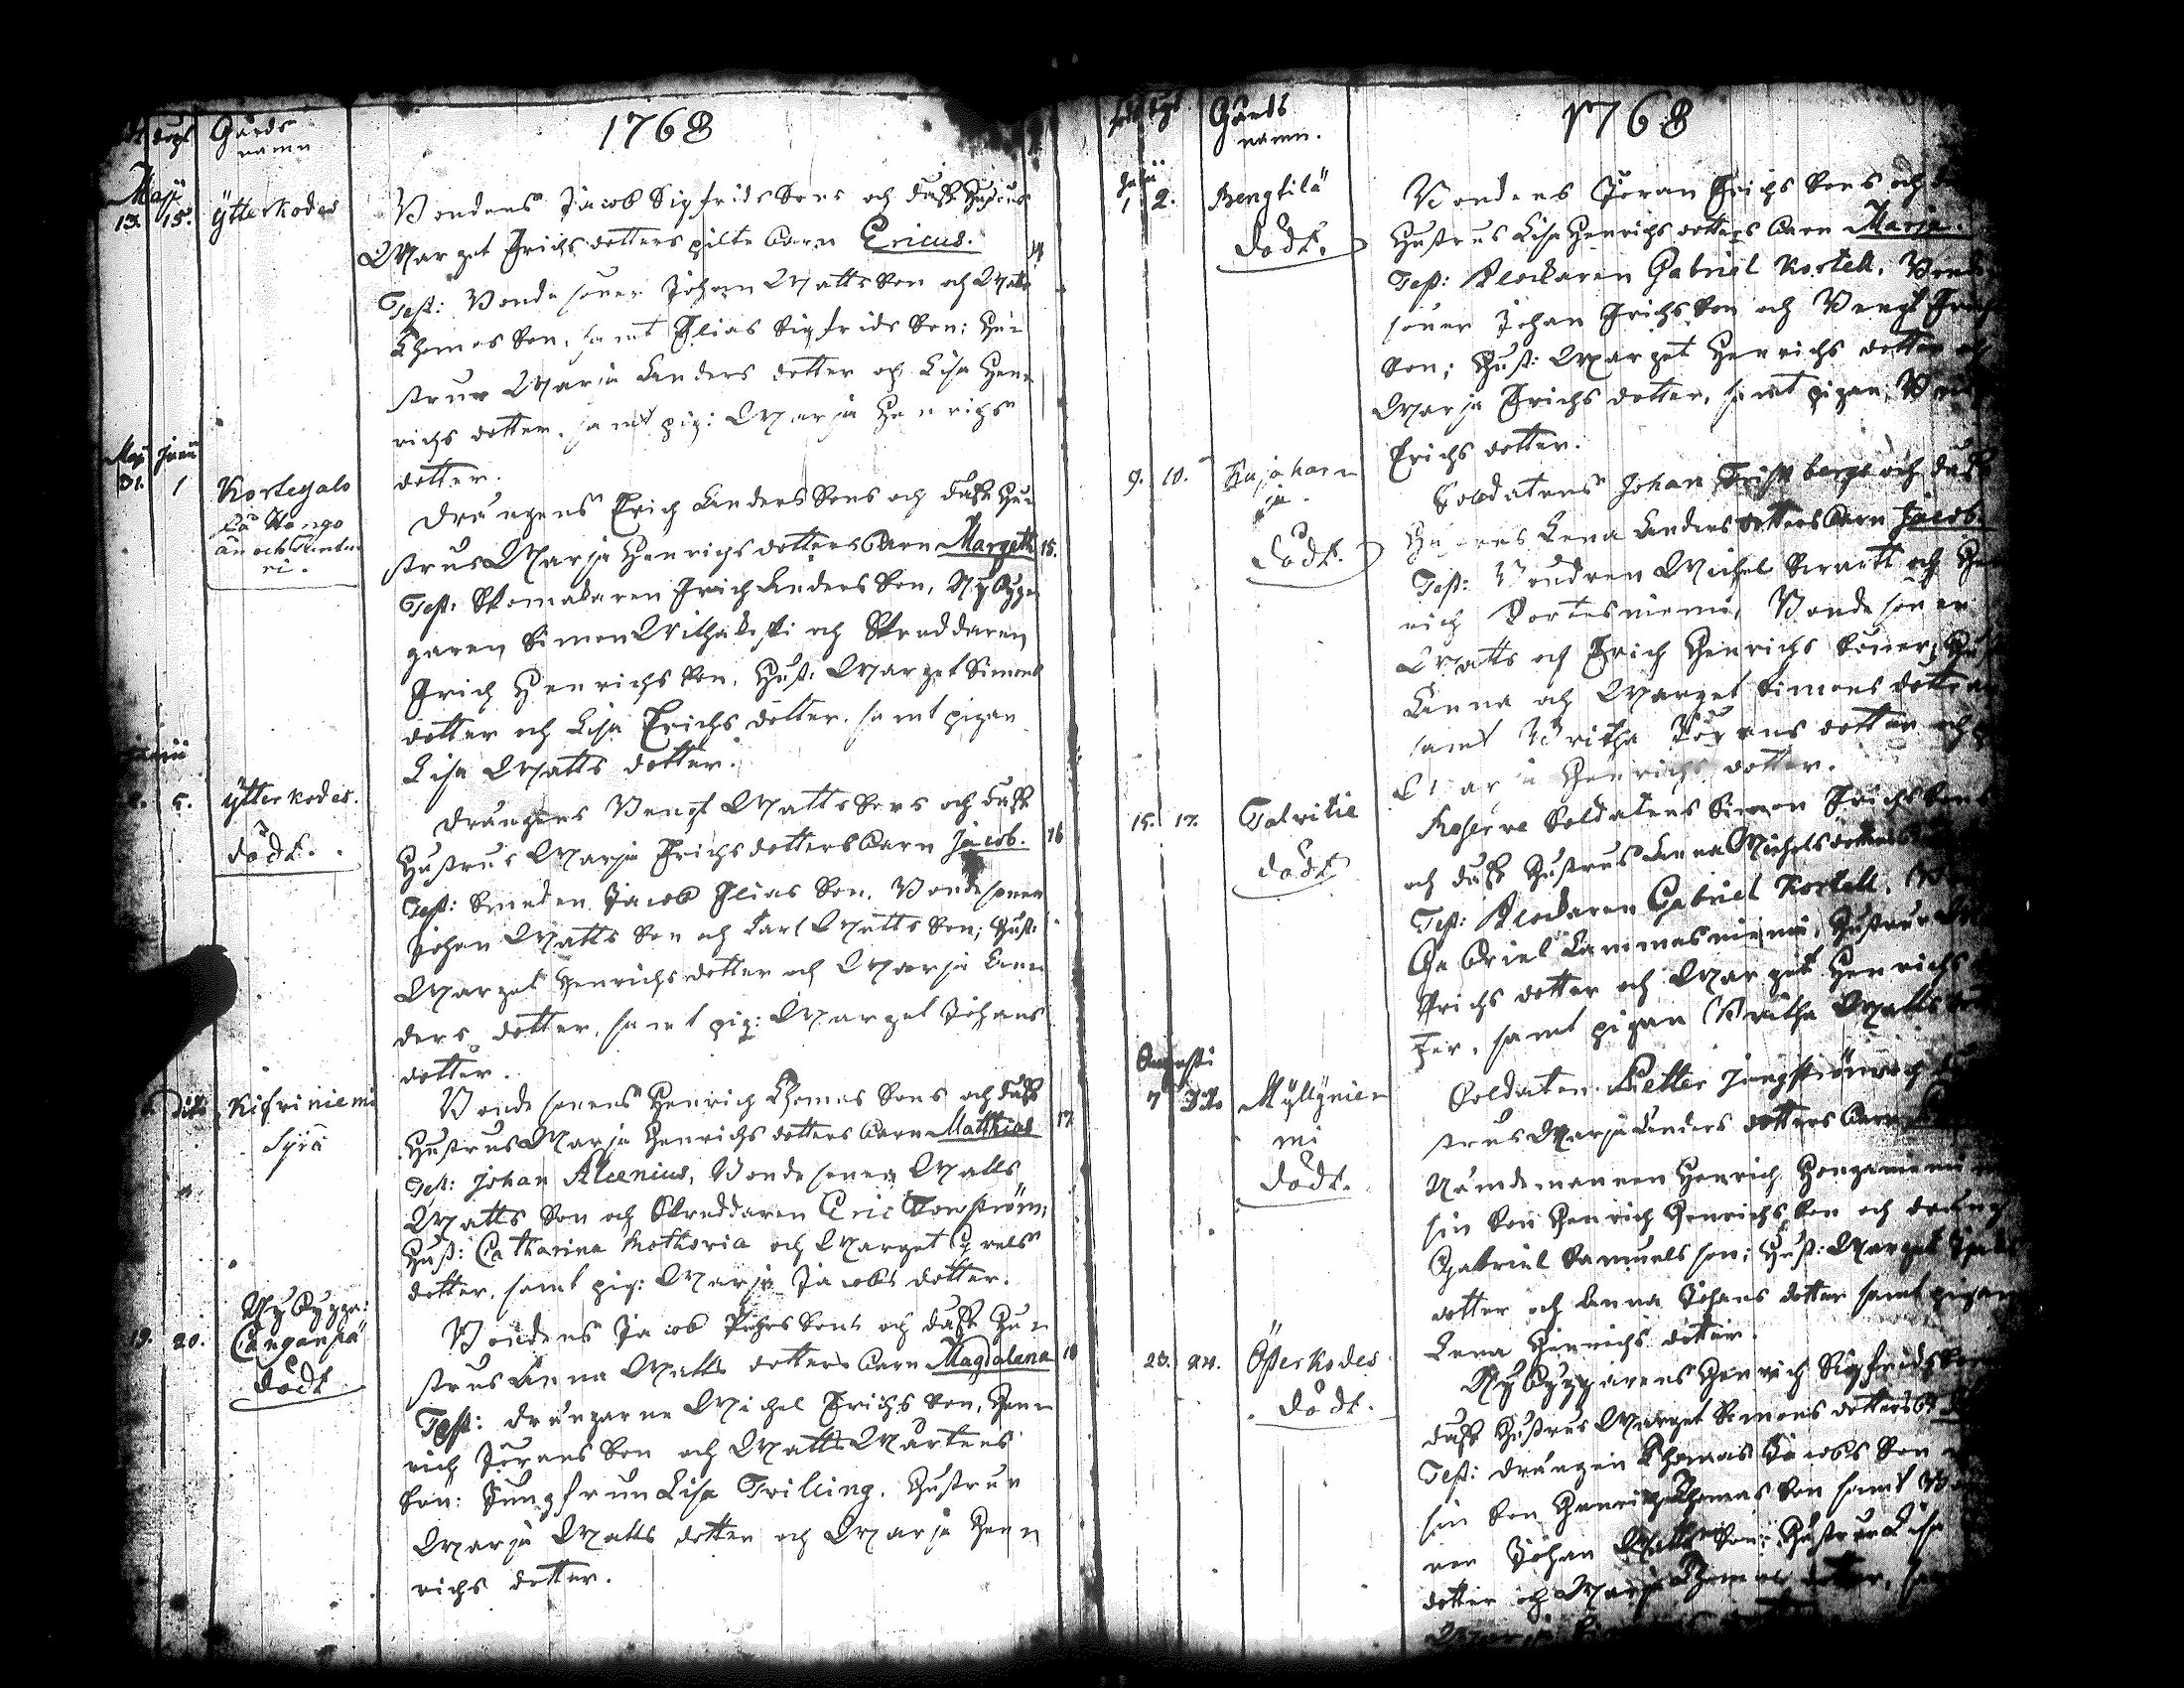 födt döpt Gårds namn
1768
Maji
13. 15. Ytterkodes
Bondens Jacob Sigfrids Sons och dess Hustrus
Marget Erichs dotters pilte barn Ericus.
Test: Bonde soner Johan Matts Son och Matts
Thomas Son, samt Elias Sigfrids Son; Hu-
strur Marja Anders dotter och Lisa Hen-
richs dotter, samt pig: Marja Henrichs
dotter.
Maji Junii
31. 1 Kortesalo
ri.
Drängens Erich Anders Sons och dess Hu-
strus Marja Henrichs dotters barn Margeth 15.
Test: Skomakaren Erich Anders Son, Nybyg-
garen Simon och Skreddaren
Erich Henrichs Son, Hust: Marget Simons
dotter och Lisa Erichs dotter, samt pigan
Lisa Matts dotter.
Junii
5. Ytterkodes.
dödt.
Drängens Bengt Matts Sons och dess
Hustrus Marja Erichs dotters barn Jacob. 16
Test: Smeden Jacob Elias Son, Bonde sonen
Johan Matts Son och Carl Matts Son; Hust:
Marget Henrichs dotter och Marja An-
ders dotter, samt pig: Marget Johans
dotter.
dito Kifriniemi
Syrä
Bonde sonens Henrich Thomas Sons och dess
Hustrus Marja Henrichs dotters barn Matthias 17
Test: Johan Alcenius, Bonde sonen Matts
Matts Son och Skreddaren Eric Forström;
Hust: Catharina Kothoria och Marget Grels
dotter, samt pig: Marja Jacobs dotter.
Nybygga:
19. 20. Canganpä
dödt
Bondens Jacob Pehrs Sons och dess Hu-
strus Anna Matts dotters barn Magdalena 18
Test: drängarne Michel Erichs Son, Hen-
rich Jörans Son och Matts Mårtens
Son: Jungfrun Lisa Trilling, Hustrur
Marja Matts dotter och Marja Hen-
richs dotter.
födt döpt Gårds namn.
1768
Julii
1 2. Bengtilä
dödt.
Bondens Jöran Erichs Sons och
Hustrus Lisa Henrichs dotters barn Marja.
Test: Klockaren Gabriel Kortell, Bonde
soner Johan Erichs Son och Bengt Erichs
Son; Hust: Marget Henrichs dotter och
Marja Erichs dotter, samt pigan
Erichs dotter.
9. 10. Kajaharju
dödt.
Soldatens Johan Frist bergs och dess
Hustrus Lena Anders dotters barn Jacob.
Test: Bondren Michel och Hen-
rich Kortesniemi, Bonde soner
Matts och Erich Henrichs Söner; Hust
Anna och Marget Simons dotter
samt Britha Jörans dotter och
Marja Henrichs dotter.
15. 17. Talvitie
dödt
Reserve Soldatens Simon Erichs Sons
och dess Hustrus Anna Michels dotters
Test: Klockaren Gabriel Kortell,
Gabriel Lammasniemi, Hustrur
Erichs dotter och Marget Henrichs
ter, samt pigan Britha Matts
Augusti
7 Dito Myllyniemi
dödt.
Soldaten Petter Jungström och
strus Marja Anders dotters barn
Nämdemannen Henrich Honganiemi
sin Son Henrich Henrichs Son och dräng
Gabriel Samuels son; Hust: Marget
dotter och Anna Johans dotter samt pigan
Lena Henrichs dotter.
23. 24. Österkodes
dödt.
Nybyggarens Henrich Sigfrids Sons
dess Hustrus Marget Simons dotters
Test: drängen Thomas Jacobs Son
sin Son Henrich Thomas Son samt
ner Johan Matts Son; Hustrur Lisa
dotter och Marja Thomas dotter,